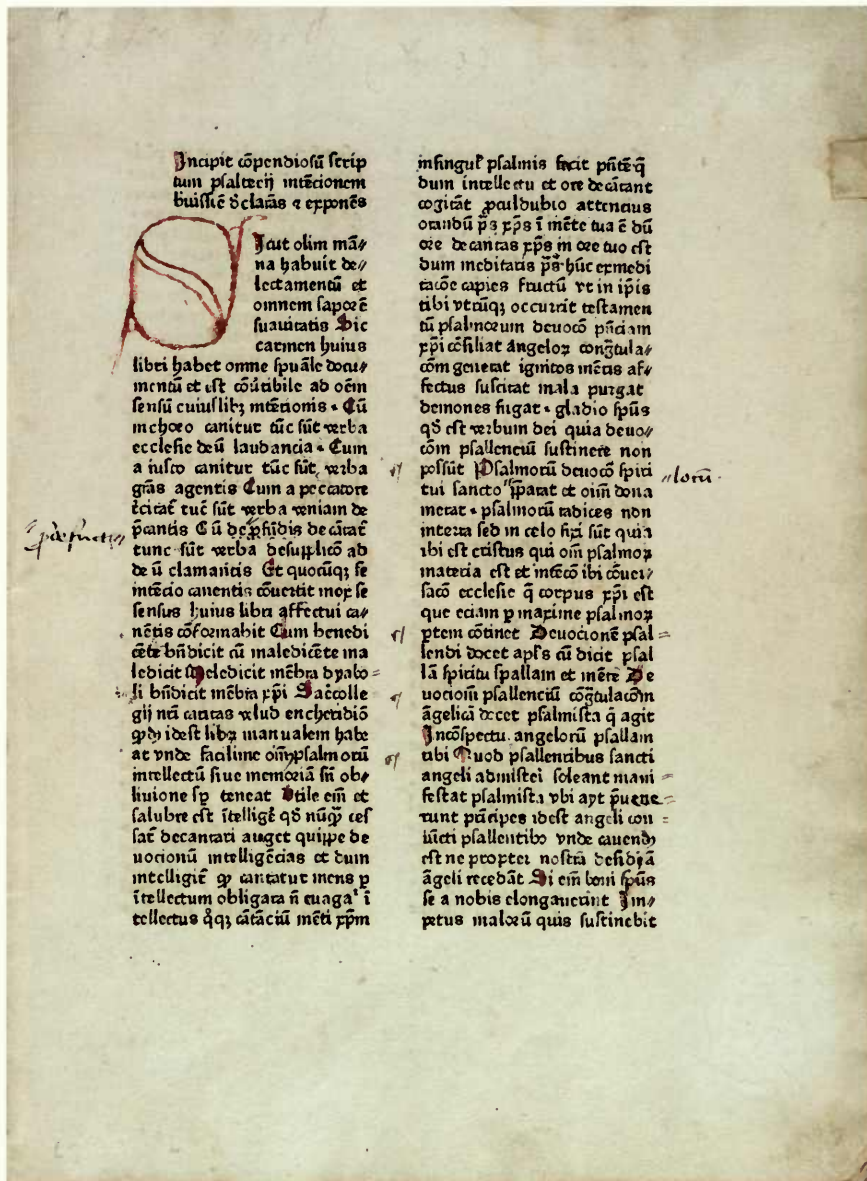 Incipit cōpendiosū scrip
tum psalterij intēcionem
buissiē dclarās ⁊ exponēs
Sicut olim mā⸗
na habuit de⸗
lectamentū et
omnem saporē
suauitatis Sic
carmen huius
libri habet omne spuāle docu⸗
mentū et est cōutibile ad oēm
sensū cuiuslibꝫ intēcionis · Cū
in choro canitur tūc sūt verba
ecclesie deū laudancia · Cum
a iusto canitur tūc sūt verba
grās agentis Cum a peccatore
recitat tūc sūt verba veniam de
pcantis Cū de pfūdis decātat
defuncti
tunc sūt verba desupplicō ad
deū clamantis Et quocūqꝫ se
intēcio canentis cōuertit mox se
sensus huius libri affectui ca⸗
nētis cōformabit Cum benedi
cēte bn̄dicit cū maledicēte ma
ledicit Meledicit mēbra dyabo⸗
li bn̄dicit mēbra xp̄i Sacͨolle
gij nr̄i caritas velud encheridiō
idest librū manualem habe
at vnde facilime oīm psalmorū
intellectū siue memoriā sn̄ ob⸗
liuione sꝑ teneat Vtile em̄ et
salubre est ītelligē qd̄ nūqͣ̄ ces
sat decantari auget quippe de
uocionū intelligēcias et dum
intelligit̄ qͥ cantatur mens ꝑ
ītellectum obligata n̄ euagaͬ ī
tellectus qͥqꝫ cātāciū mēti xp̄m
in singuľ psalmis facit pn̄tē q̄
dum intellectu et ore decātant
cogitāt ꝓculdubio attencius
orandū p̄s xp̄s ī mēte tua ē dū
ore decantas xp̄s in ore tuo est
dum meditaris p̄s hūc ex medi
tacōe capies fructū vt in ip̄is
tibi vtcūqꝫ occurrāt testamen
tū psalmorum deuocō pn̄ciam
xp̄i cōsiliat angeloꝝ congrtula⸗
cōm generat ignitos mētis af⸗
fectus suscitat mala purgat
demones fugat · gladio sp̄us
qd̄ est verbum dei quia deuo⸗
cōm psallenciū sustinere non
possūt Psalmorū deuocō spiri
lorū ·
tui sancto p̄parat et oīm dona
meretͣ · psalmorū radices non
in terra sed in celo fixi sūt quia
ibi est cristus qui oīm psalmoꝝ
materia est et intēcō ibi cōuer⸗
sacō ecclesie q̄ corpus xp̄i est
que eciam ꝑ maxime psalmoꝝ
ꝑtem cōtinet Deuocionē psal⸗
lendi docet apl̄s cū dicit psal
lā spiritu spallam et mēte De
uociom̄ psallenciū cōgrtulacōm
āgelicā docet psalmista q̄ agit
In cōspectu angelorū psallam
tibi Quod psallentibus sancti
angeli admisceri soleant mani⸗
festat psalmista vbi ayt p̄uene⸗
runt pn̄cipes idest angeli con⸗
iūcti psallentibꝰ vnde cauendū
est ne propter nostrā desidiā
āgeli recedāt Si em̄ boni sp̄us
se a nobis elongauerint Im⸗
petus malorū quis sustinebit